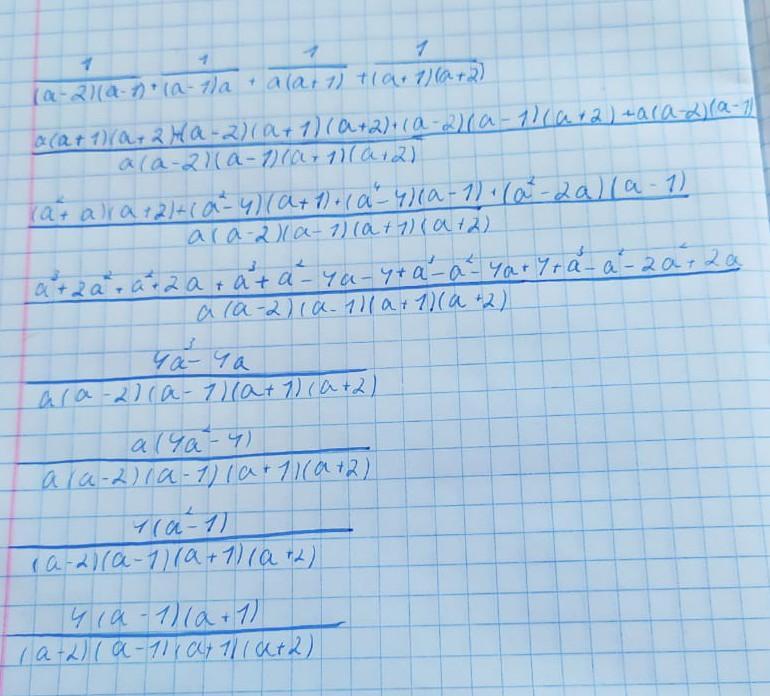 1/((a-2)(a-1)) + 1/((a-1)a) + 1/(a(a+1)) + 1/((a+1)(a+2))
(a(a+1)(a+2)+(a-2)(a+1)(a+2)+(a-2)(a-1)(a+2)+a(a-2)(a-1))/(a(a-2)(a-1)(a+1)(a+2))
((a²+a)(a+2)+(a²-4)(a+1)+(a²-4)(a-1)+(a²-2a)(a-1))/(a(a-2)(a-1)(a+1)(a+2))
(a³+2a²+a²+2a+a³+a²-4a-4+a³-a²-4a+4+a³-a²-2a²+2a)/(a(a-2)(a-1)(a+1)(a+2))
(4a³-4a)/(a(a-2)(a-1)(a+1)(a+2))
(a(4a²-4))/(a(a-2)(a-1)(a+1)(a+2))
(4(a²-1))/((a-2)(a-1)(a+1)(a+2))
(4(a-1)(a+1))/((a-2)(a-1)(a+1)(a+2))